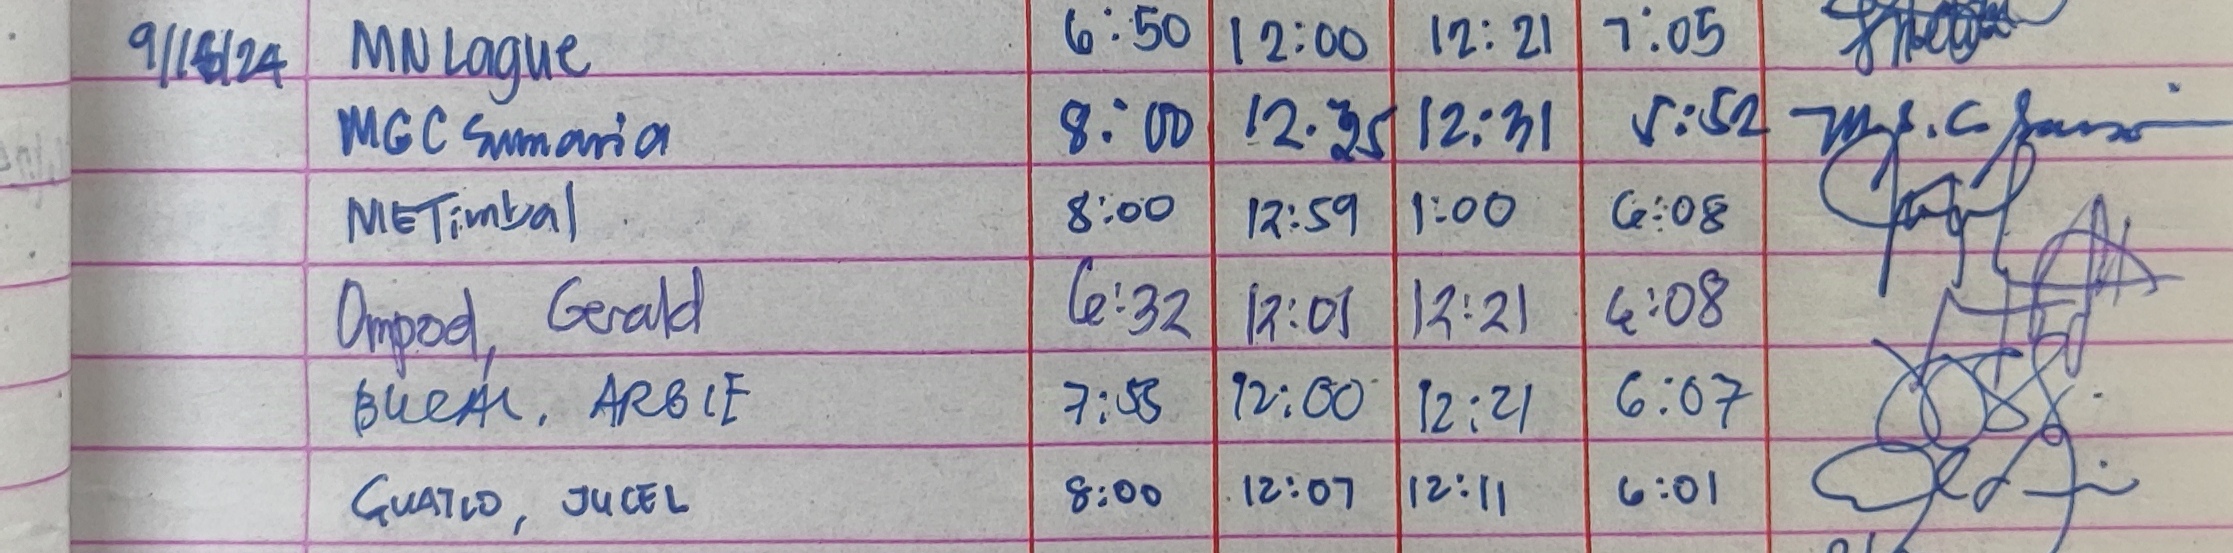 9/16/24 MN Lague 6:50 12:00 12:21 7:05
MGC Sumaria 8:00 12:35 12:31 5:52
METimbal 8:00 12:59 1:00 6:08
Ompod, Gerald 6:32 12:01 12:21 6:08
ARGIE 7:55 12:00 12:21 6:07
GUATCO, JUCEL 8:00 12:07 12:11 6:01